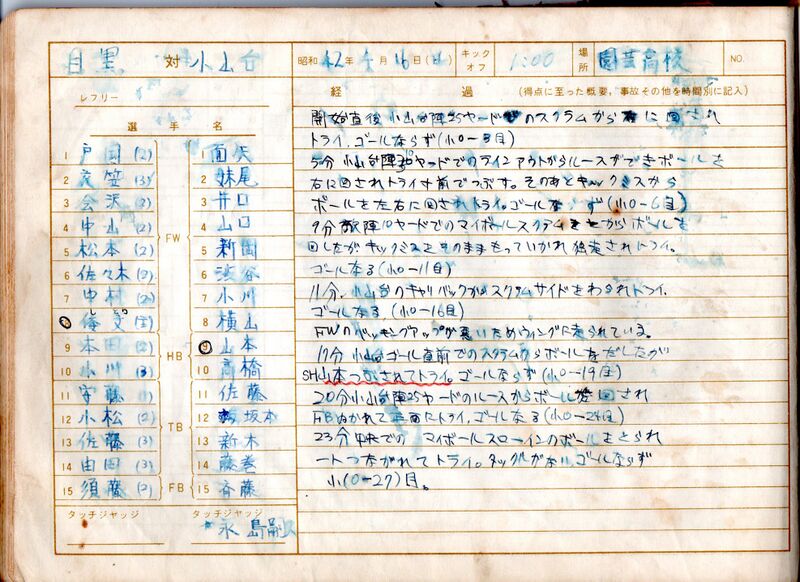 目黒 対 小山台 昭和 42年 月 16日(日) キックオフ 1:00 場所 園芸高校 NO.
レフリー
経過 (得点に至った概要、事故その他を時間別に記入)
選手名
1 戸国 (2) 1 面矢
2 (3) 2 妹尾
3 会沢 (2) 3 井口
4 中山 (2) FW 4 山口
5 松本 (2) 5 新岡
6 佐々木 (2) 6 渋谷
7 中村 (2) 7 小川
8 横山
9 本田 (2) HB 9 山本
10 小川 (3) 10 高橋
11 守藤 (1) 11 佐藤
12 小松 (2) TB 12 坂本
13 佐藤 (3) 13 新木
14 由田 (3) 14 藤巻
15 須藤 (2) FB 15 斉藤
タッチジャッジ タッチジャッジ
永島嗣
開始直後小山台陣25ヤードのスクラムから に回され
トライ、ゴールならず(小0-3目)
5分 小山台陣 ヤードでのラインアウトからルースができボールを
右に回されトライ寸前でつぶす。そのあとキックミスから
ボールを左右に回されトライ。ゴールならず(小0-6目)
9分 敵陣10ヤードでのマイボールスクラム からボールを
回したがキックミスをそのままもっていかれ独走されトライ。
ゴールなる(小0-11目)
11分、小山台のキャリバックからスクラムサイドをわられトライ。
ゴールなる(小0-16目)
FWのバッキングアップが悪いためウィングに走られている。
17分 小山台ゴール直前でのスクラムからボールをだしたが
SH山本つぶされてトライ。ゴールならず(小0-19目)
20分小山台陣25ヤードのルースからボール 回され
FBぬかれて正面にトライ、ゴールなる(小0-24目)
23分 中央での マイボールスローインのボールをとられ
一トつながれてトライ。タックルがない。ゴールならず
小(0-27)目。